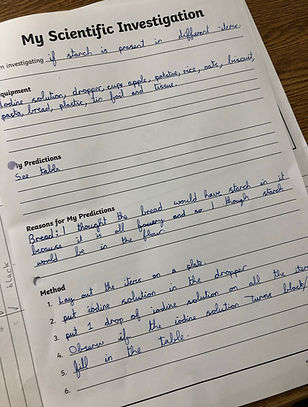 My Scientific Investigation
investigating if starch is present in different items.
quipment
Iodine solution, dropper, cups apple, potatoe, rice, oats, biscuit,
pasta, bread, plastic, tin foil and tissue.
My Predictions
See table
Reasons for My Predictions
Bread: I thought the bread would have starch in it
because it is all and so I though starch
would be in the flour.
Method
1. Lay out the items on a plate.
2. put iodine solution in the dropper
3. put 1 drop of iodine solution on all the items
4. Observe if the iodine solution turns black/
5. fill in the table.
6.
black